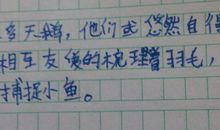 多天鹅，他们或悠然自得
相互友偻的梳理着羽毛，
捕捉小鱼。